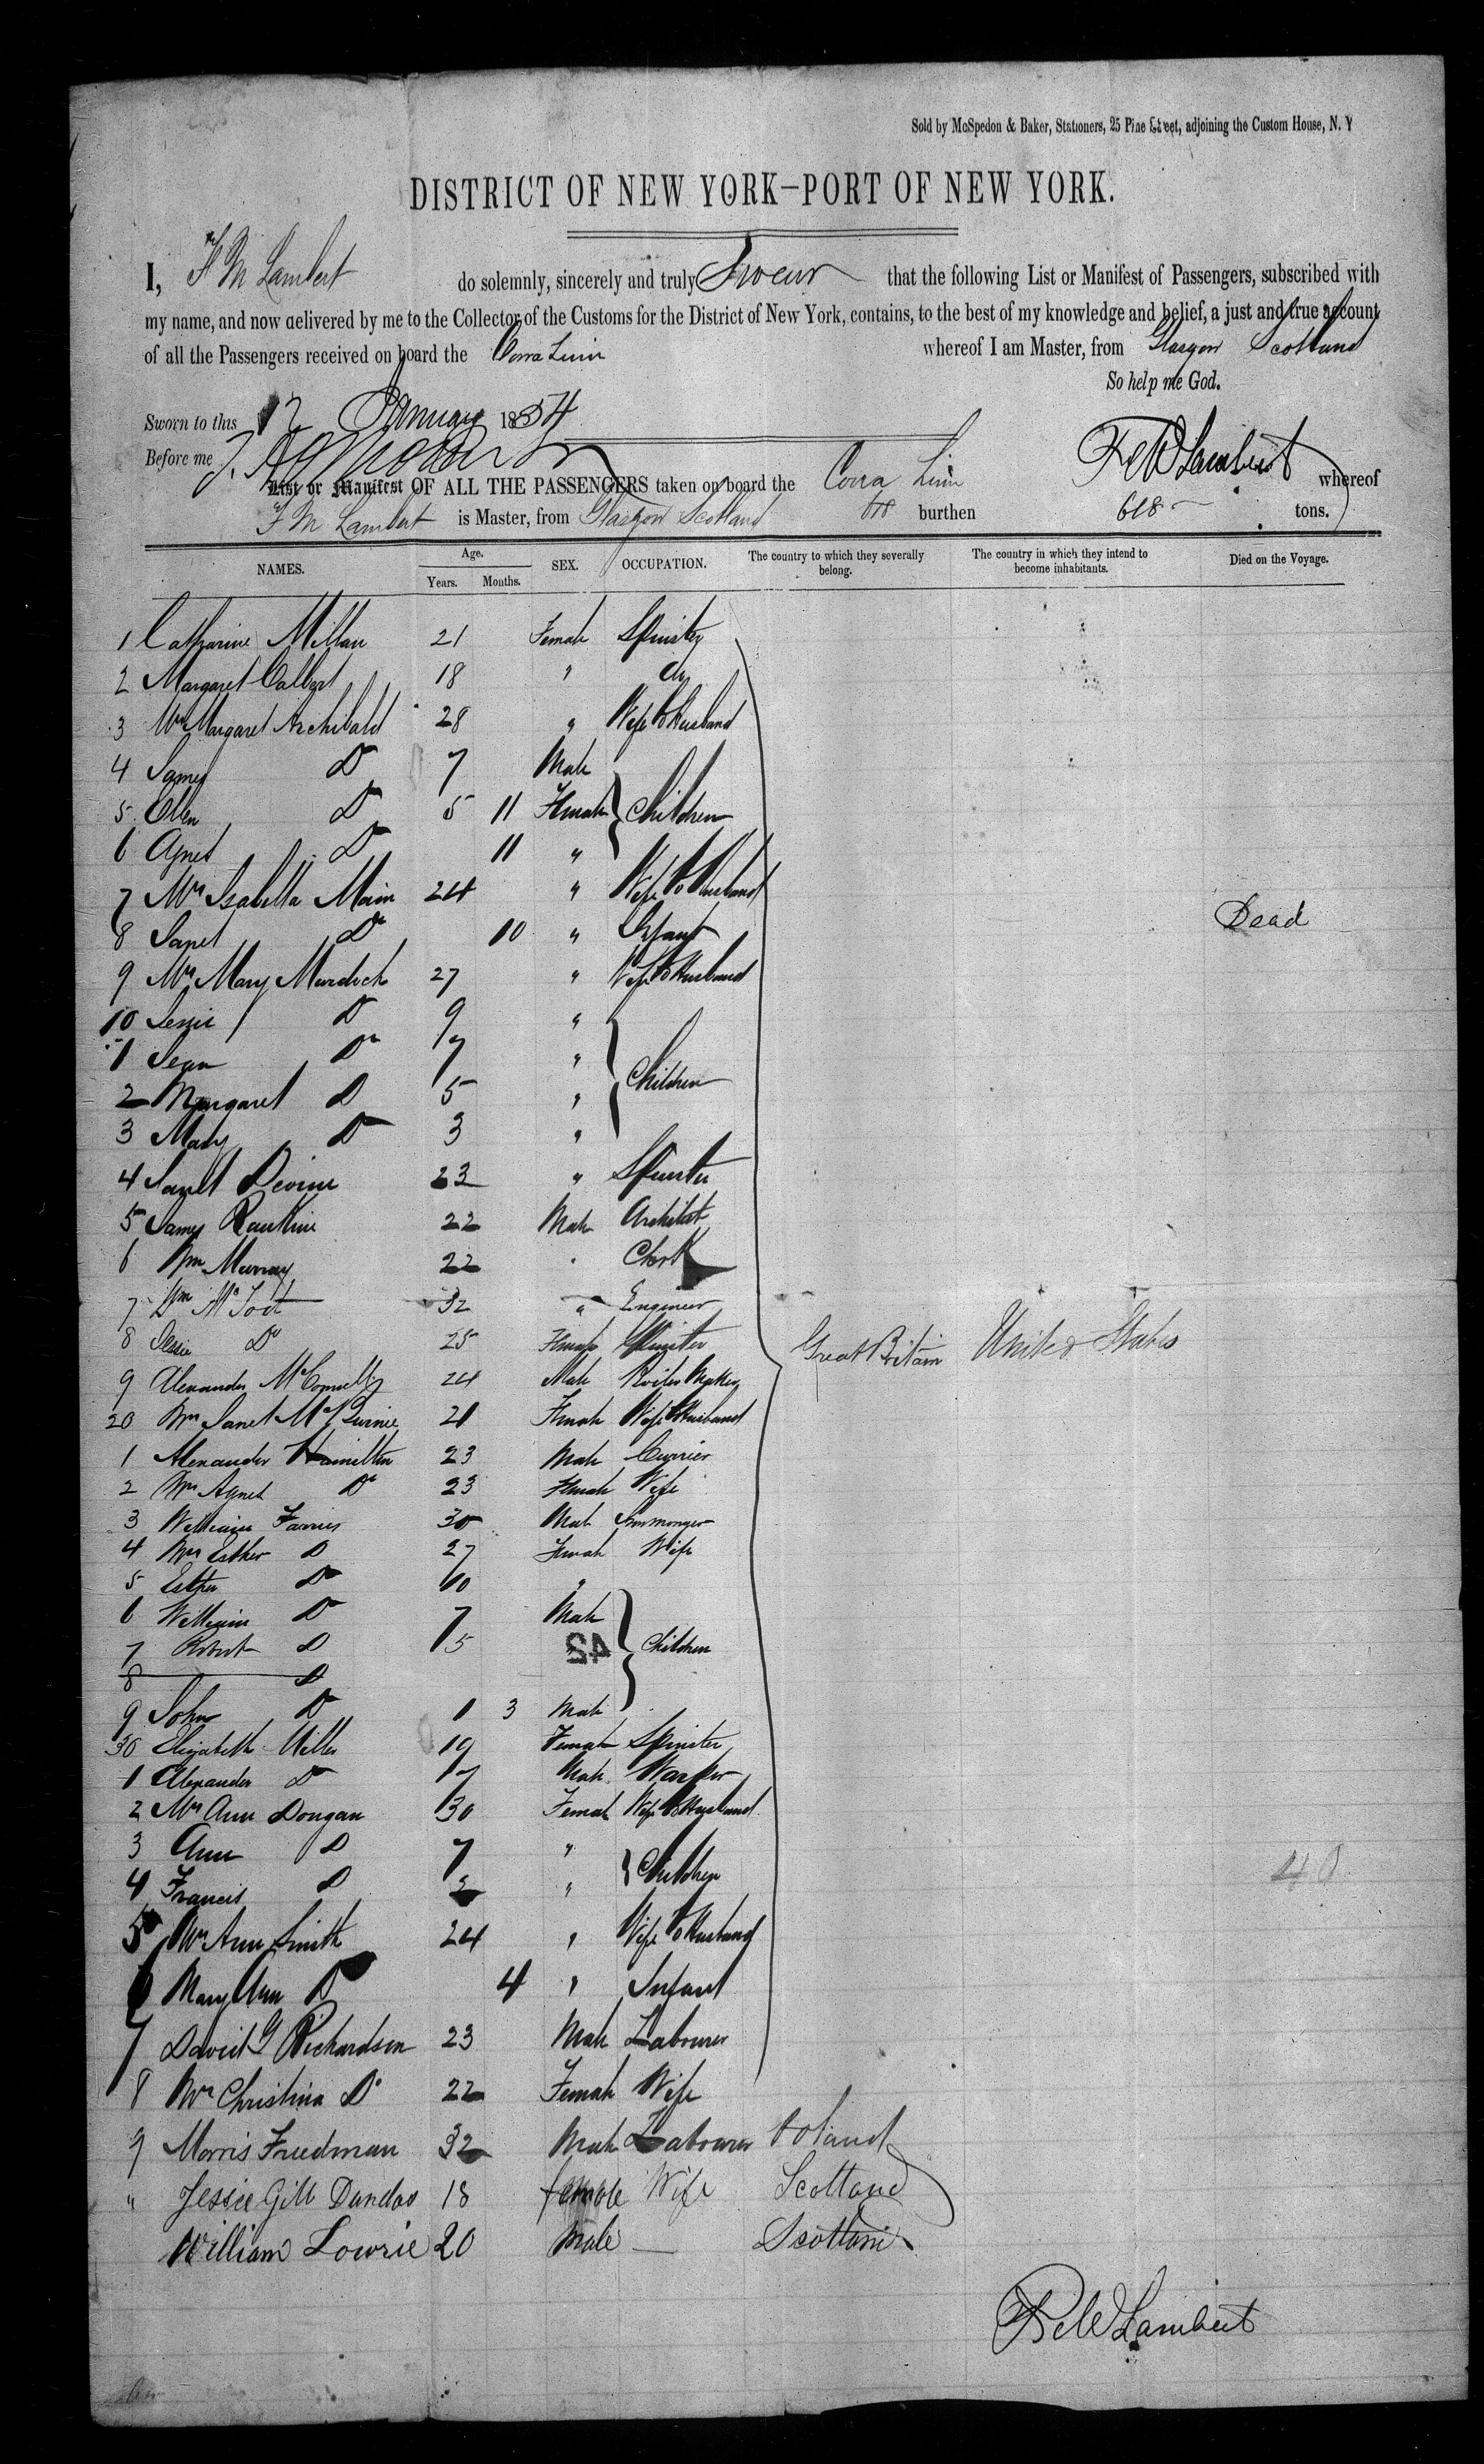 Sold by McSpedon & Baker, Stationers, 25 Pine Street, adjoining the Custom House, N. Y
DISTRICT OF NEW YORK—PORT OF NEW YORK.
I, F M Lambert do solemnly, sincerely and truly Swear that the following List or Manifest of Passengers, subscribed with
my name, and now delivered by me to the Collector of the Customs for the District of New York, contains, to the best of my knowledge and belief, a just and true account
of all the Passengers received on board the Corra Linn whereof I am Master, from Glasgow Scotland
So help me God.
Sworn to this 12 January 1854
Before me
List or Manifest OF ALL THE PASSENGERS taken on board the Corra Linn whereof
F M Lambert is Master, from Glasgow Scotland burthen 618 tons.
NAMES. Age. Years. Months. SEX. OCCUPATION. The country to which they severally belong. The country in which they intend to become inhabitants. Died on the Voyage.
1 Catharine Millan 21 Female Spinster
2 Margaret Calbert 18 " do
3 Mrs Margaret Archibald 28 " Wife to Husband
4 James Do 7 Male
5 Ellen Do 5 11 Female Children
6 Agnes Do 11 "
7 Mrs Isabella Main 24 " Wife to Husband
8 Janet Do 10 " Infant Dead
9 Mrs Mary Murdoch 27 " Wife to Husband
10 Jessie Do 9 "
1 Jean Do 7 "
2 Margaret D 5 " Children
3 Mary Do 3 "
4 Janet Devine 23 " Spinster
5 James Rankine 22 Male Architect
6 Wm Murray 22 " Clerk
7 Wm 32 " Engineer
8 Jessie Do 25 Female Spinster
9 Alexander McConnell 24 Male Boiler Maker
Great Britain United States
20 Mrs Janet 21 Female Wife to Husband
1 Alexander Hamilton 23 Male Currier
2 Mrs Agnes Do 23 Female Wife
3 William Farries 30 Male Ironmonger
4 Mrs Esther D 27 Female Wife
5 Esther Do 10 "
6 William Do 7 Male
7 Robert D 5 Children
42
8 D
9 John Do 1 3 Male
30 Elizabeth Miller 19 Female Spinster
1 Alexander Do 17 Male
2 Mrs Ann Dougan 30 Female Wife to Husband
3 Ann D 7 " Children
4 Francis D 2 "
40
5 Mrs Ann Smith 24 " Wife to Husband
6 Mary Ann D 4 " Infant
7 David G Richardson 23 Male Labourer
8 Mrs Christina Do 22 Female Wife
9 Morris Friedman 32 Male Labourer Poland
" Jessie Gill Dundas 18 female Wife Scotland
William Lowrie 20 Male — Scotland
Lambert